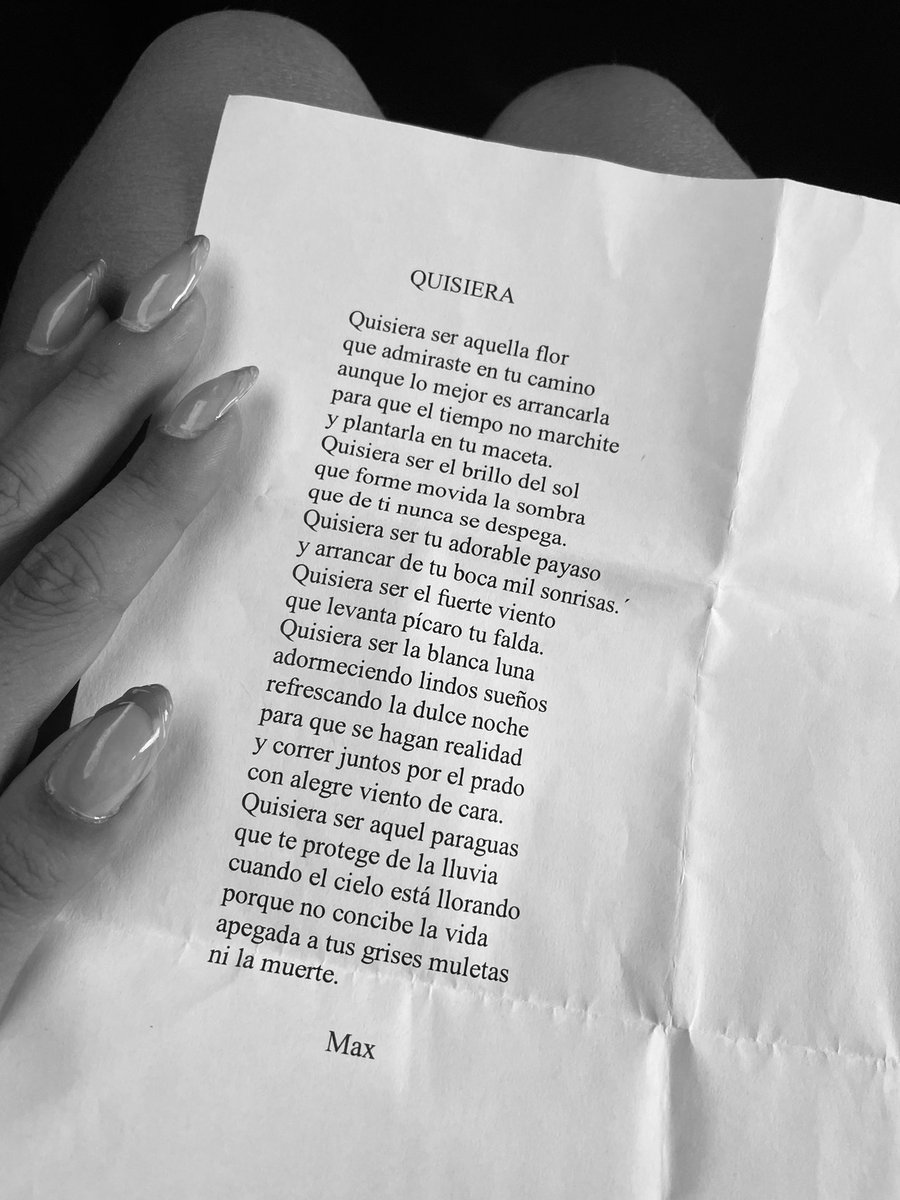 QUISIERA
Quisiera ser aquella flor
que admiraste en tu camino
aunque lo mejor es arrancarla
para que el tiempo no marchite
y plantarla en tu maceta.
Quisiera ser el brillo del sol
que forme movida la sombra
que de ti nunca se despega.
Quisiera ser tu adorable payaso
y arrancar de tu boca mil sonrisas.´
Quisiera ser el fuerte viento
que levanta pícaro tu falda.
Quisiera ser la blanca luna
adormeciendo lindos sueños
refrescando la dulce noche
para que se hagan realidad
y correr juntos por el prado
con alegre viento de cara.
Quisiera ser aquel paraguas
que te protege de la lluvia
cuando el cielo está llorando
porque no concibe la vida
apegada a tus grises muletas
ni la muerte.
Max